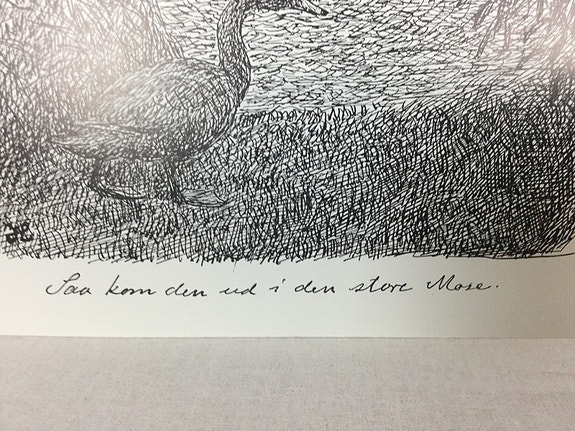 Saa kom den ud i den store Mose.